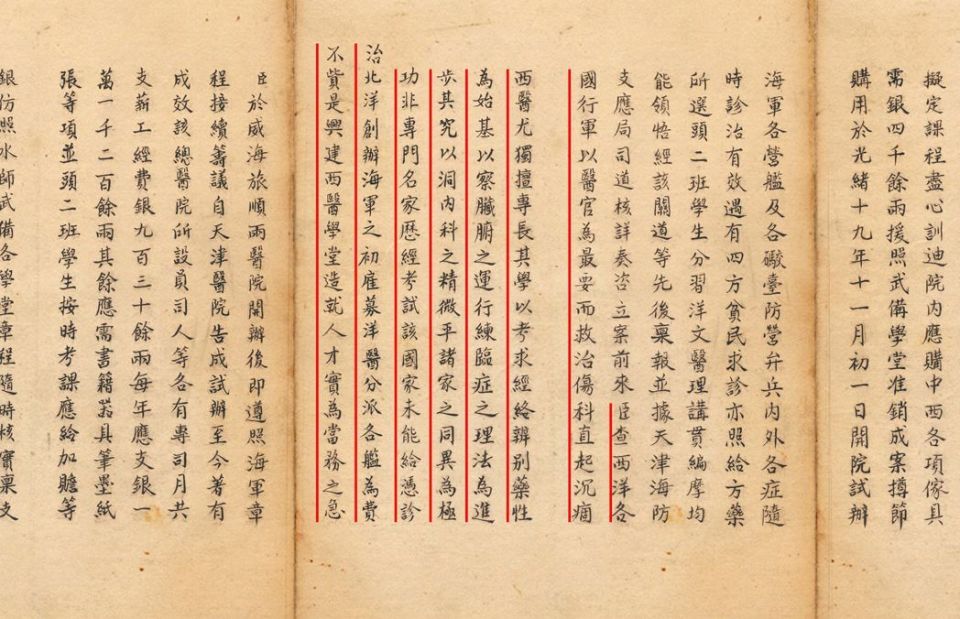 擬定課程盡心訓迪院內應購中西各項傢具
需銀四千餘兩援照武備學堂准銷成案撙節
購用於光緒十九年十一月初一日開院試辦
海軍各營艦及各礮臺防營弁兵內外各症隨
時診治有效遇有四方貧民求診亦照給方藥
所選頭二班學生分習洋文醫理講貫編摩均
能領悟經該關道等先後稟報並據天津海防
支應局司道核詳奏咨立案前來臣查西洋各
國行軍以醫官為最要而救治傷科直起沉痼
西醫尤獨擅專長其學以考求經絡辨别藥性
為始基以察臟腑之運行練臨症之理法為進
步其究以洞內科之精微平諸家之同異為極
功非專門名家歷經考試該國家未能給憑診
治北洋創辦海軍之初雇募洋醫分派各艦為費
不貲是興建西醫學堂造就人才實為當務之急
臣於威海旅順兩醫院開辦後即遵照海軍章
程接續籌議自天津醫院告成試辦至今著有
成效該總醫院所設員司人等各有專司月共
支薪工經費銀九百三十餘兩每年應支銀一
萬一千二百餘兩其餘應需書籍器具筆墨紙
張等項並頭二班學生按時考課應給加贍等
銀仿照水師武備各學堂章程隨時核實稟支